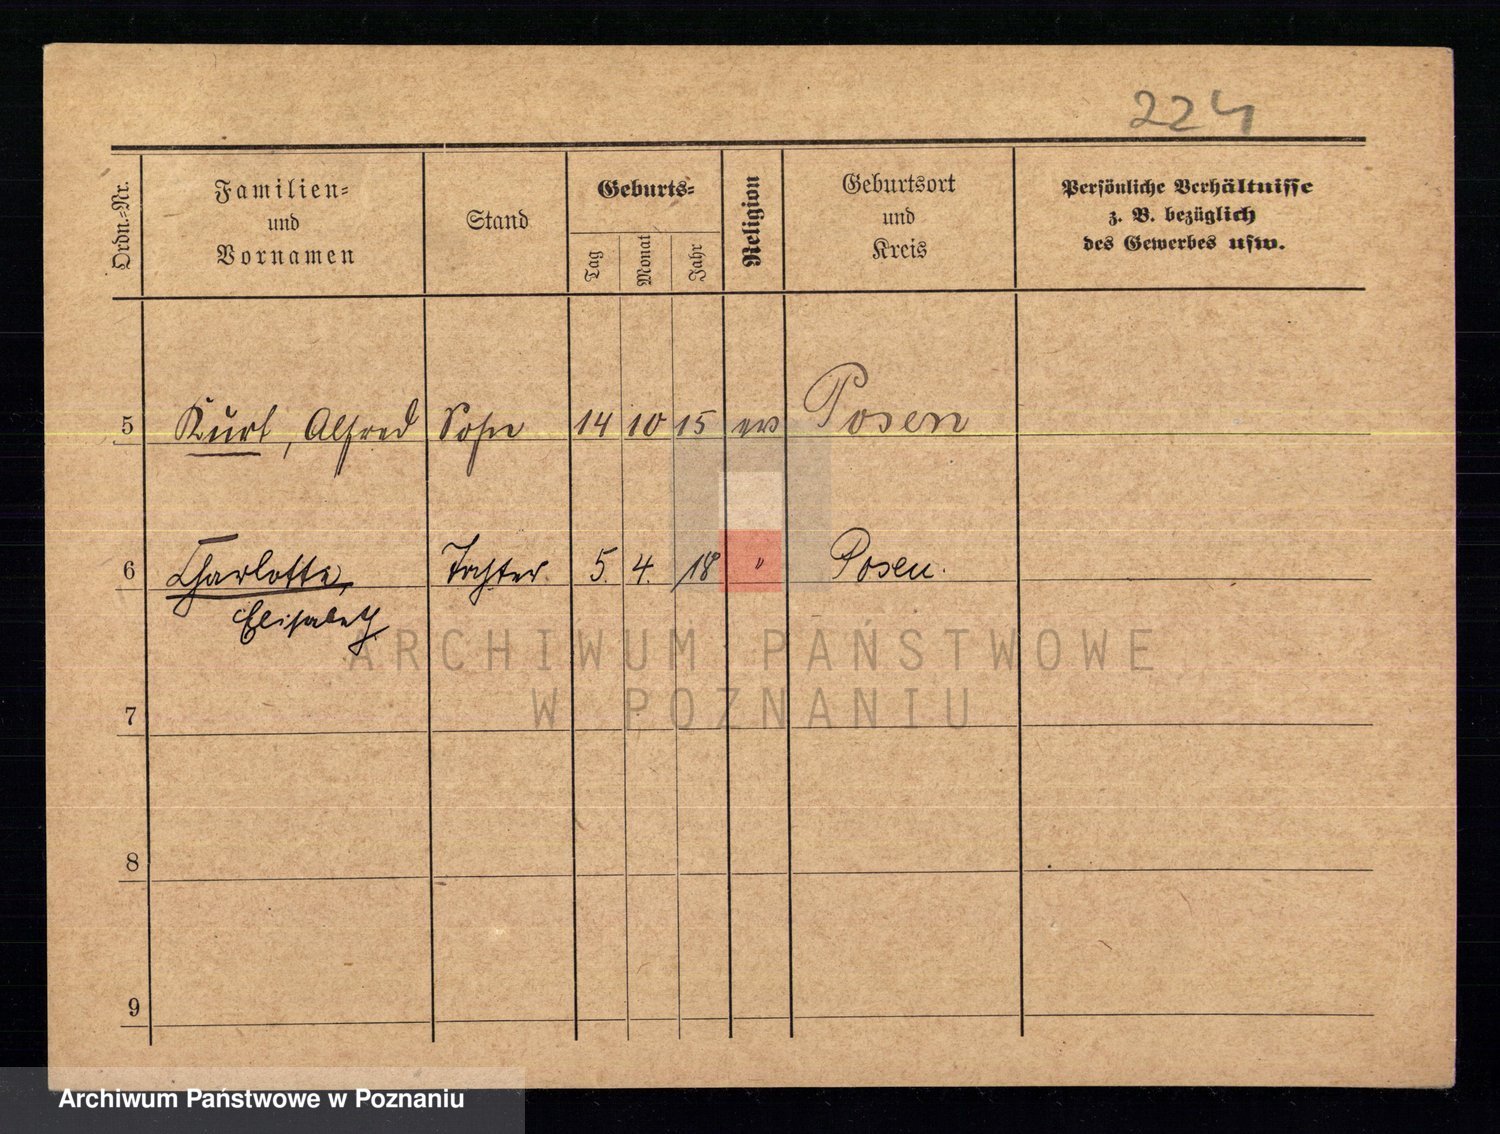 224
Ordn.-Nr.
Familien-
und
Vornamen
Stand
Geburts-
Tag
Monat
Jahr
Religion
Geburtsort
und
Kreis
Persönliche Verhältnisse
z. B. bezüglich
des Gewerbes usw.
5 Kurt, Alfred Sohn 14 10 15 ev Posen
6 Charlotte, Tochter. 5. 4. 18 " Posen.
Elisabeth
7
8
9
ARCHIWUM PAŃSTWOWE
W POZNANIU
Archiwum Państwowe w Poznaniu